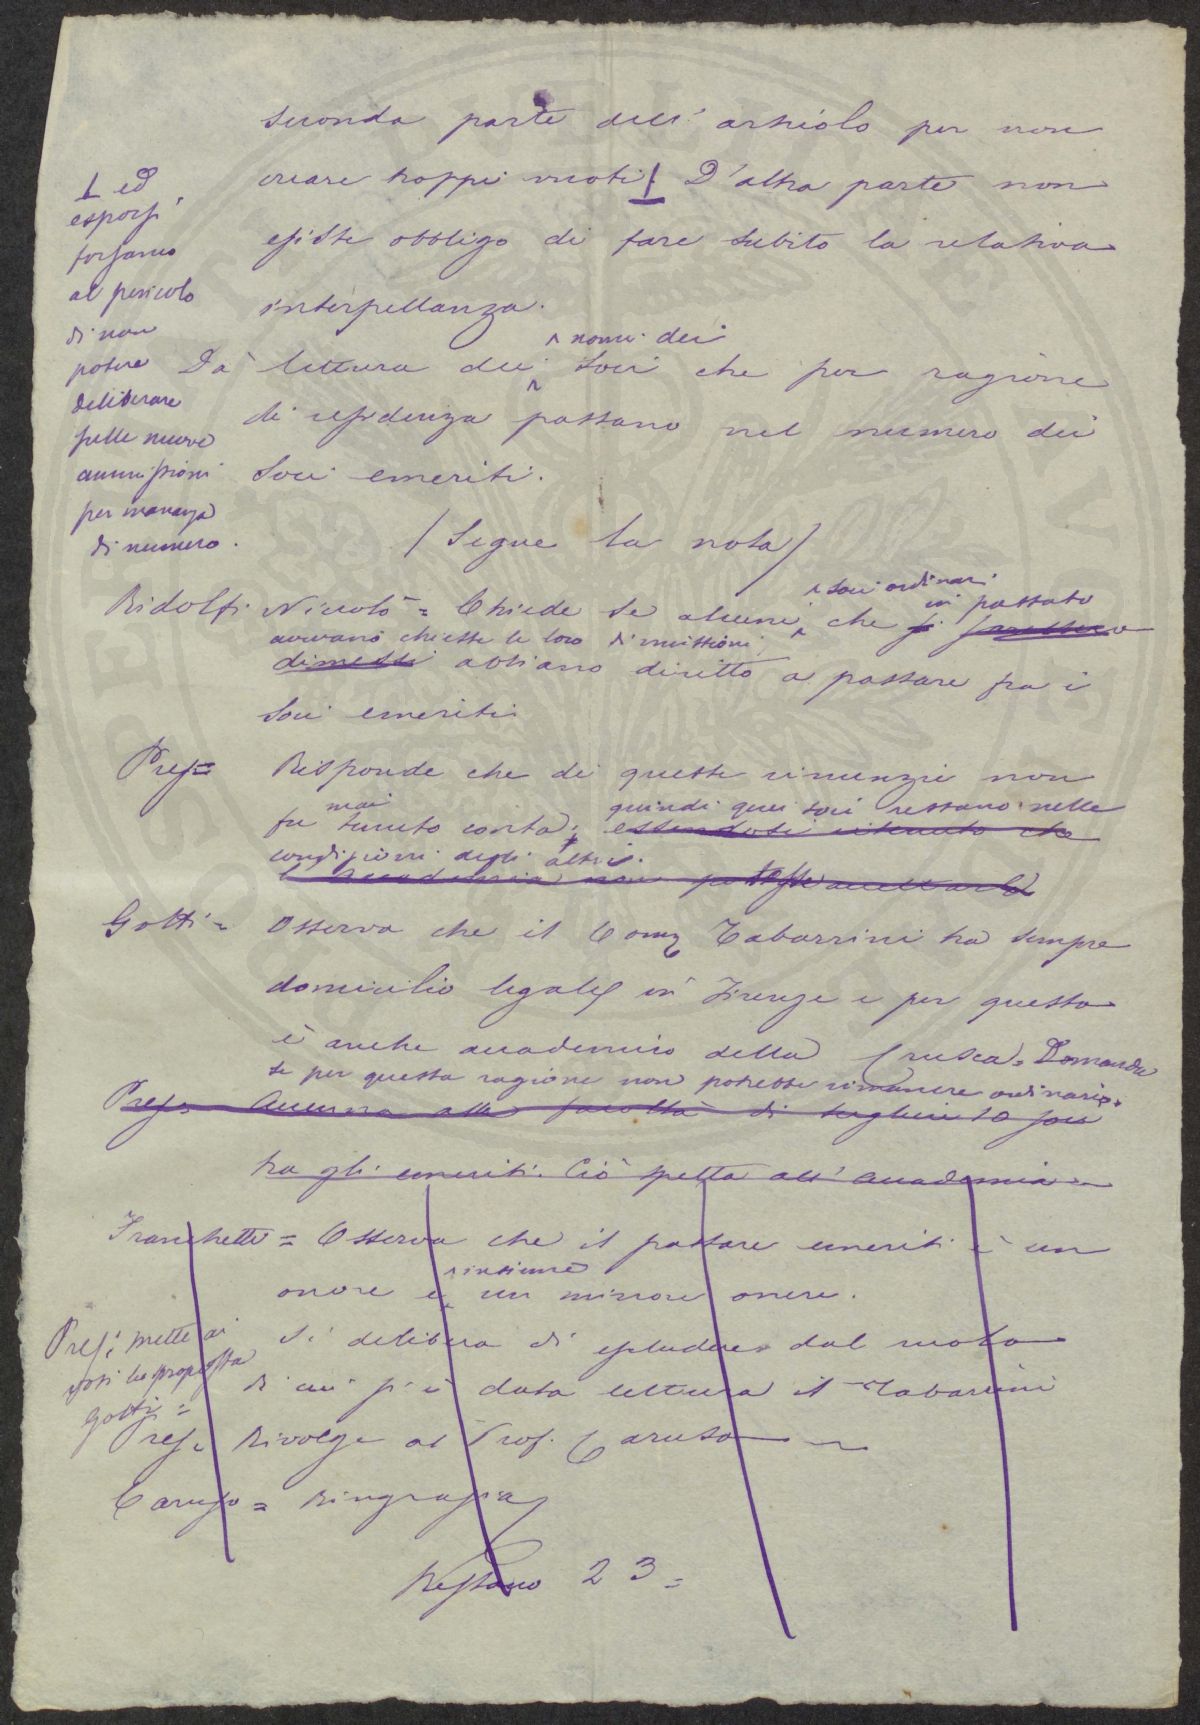 seconda parte dell'articolo per non
creare troppi vuoti. D'altra parte non
esiste obbligo di fare subito la relativa
interpellanza.
ed
esporsi
forsanco
al pericolo
di non
potere
deliberare
sulle nuove
ammissioni
per mancanza
di numero.
Dà lettura dei nomi dei Soci che per ragione
di residenza passano nel numero dei
Soci emeriti.
(Segue la nota)
Ridolfi Niccolò = Chiede se alcuni soci ordinari che in passato
avevano chieste le loro dimissioni
dimessi abbiano diritto a passare fra i
Soci emeriti.
Pres = Risponde che di queste rinunzie non
fu mai tenuto conto; quindi quei soci restano nelle
essendosi ritenuto che
condizioni degli altri.
l'Accademia non potesse accettarle
Gotti = Osserva che il Comm Tabarrini ha sempre
domicilio legale in Firenze e per questo
è anche accademico della Crusca. Domanda
se per questa ragione non potrebbe rimanere ordinario.
Pres = Accenna alla facoltà di
tra gli emeriti. Ciò spetta all'Accademia
Franchetti = Osserva che il passare emeriti è un
onore e insieme un minore onere.
Pres: mette ai
voti la proposta
Gotti =
Si delibera di escludere dal ruolo
di cui si è data lettura il Tabarrini
Pres = Rivolge al Prof. Caruso
Caruso = Ringrazia
Restano 23 =